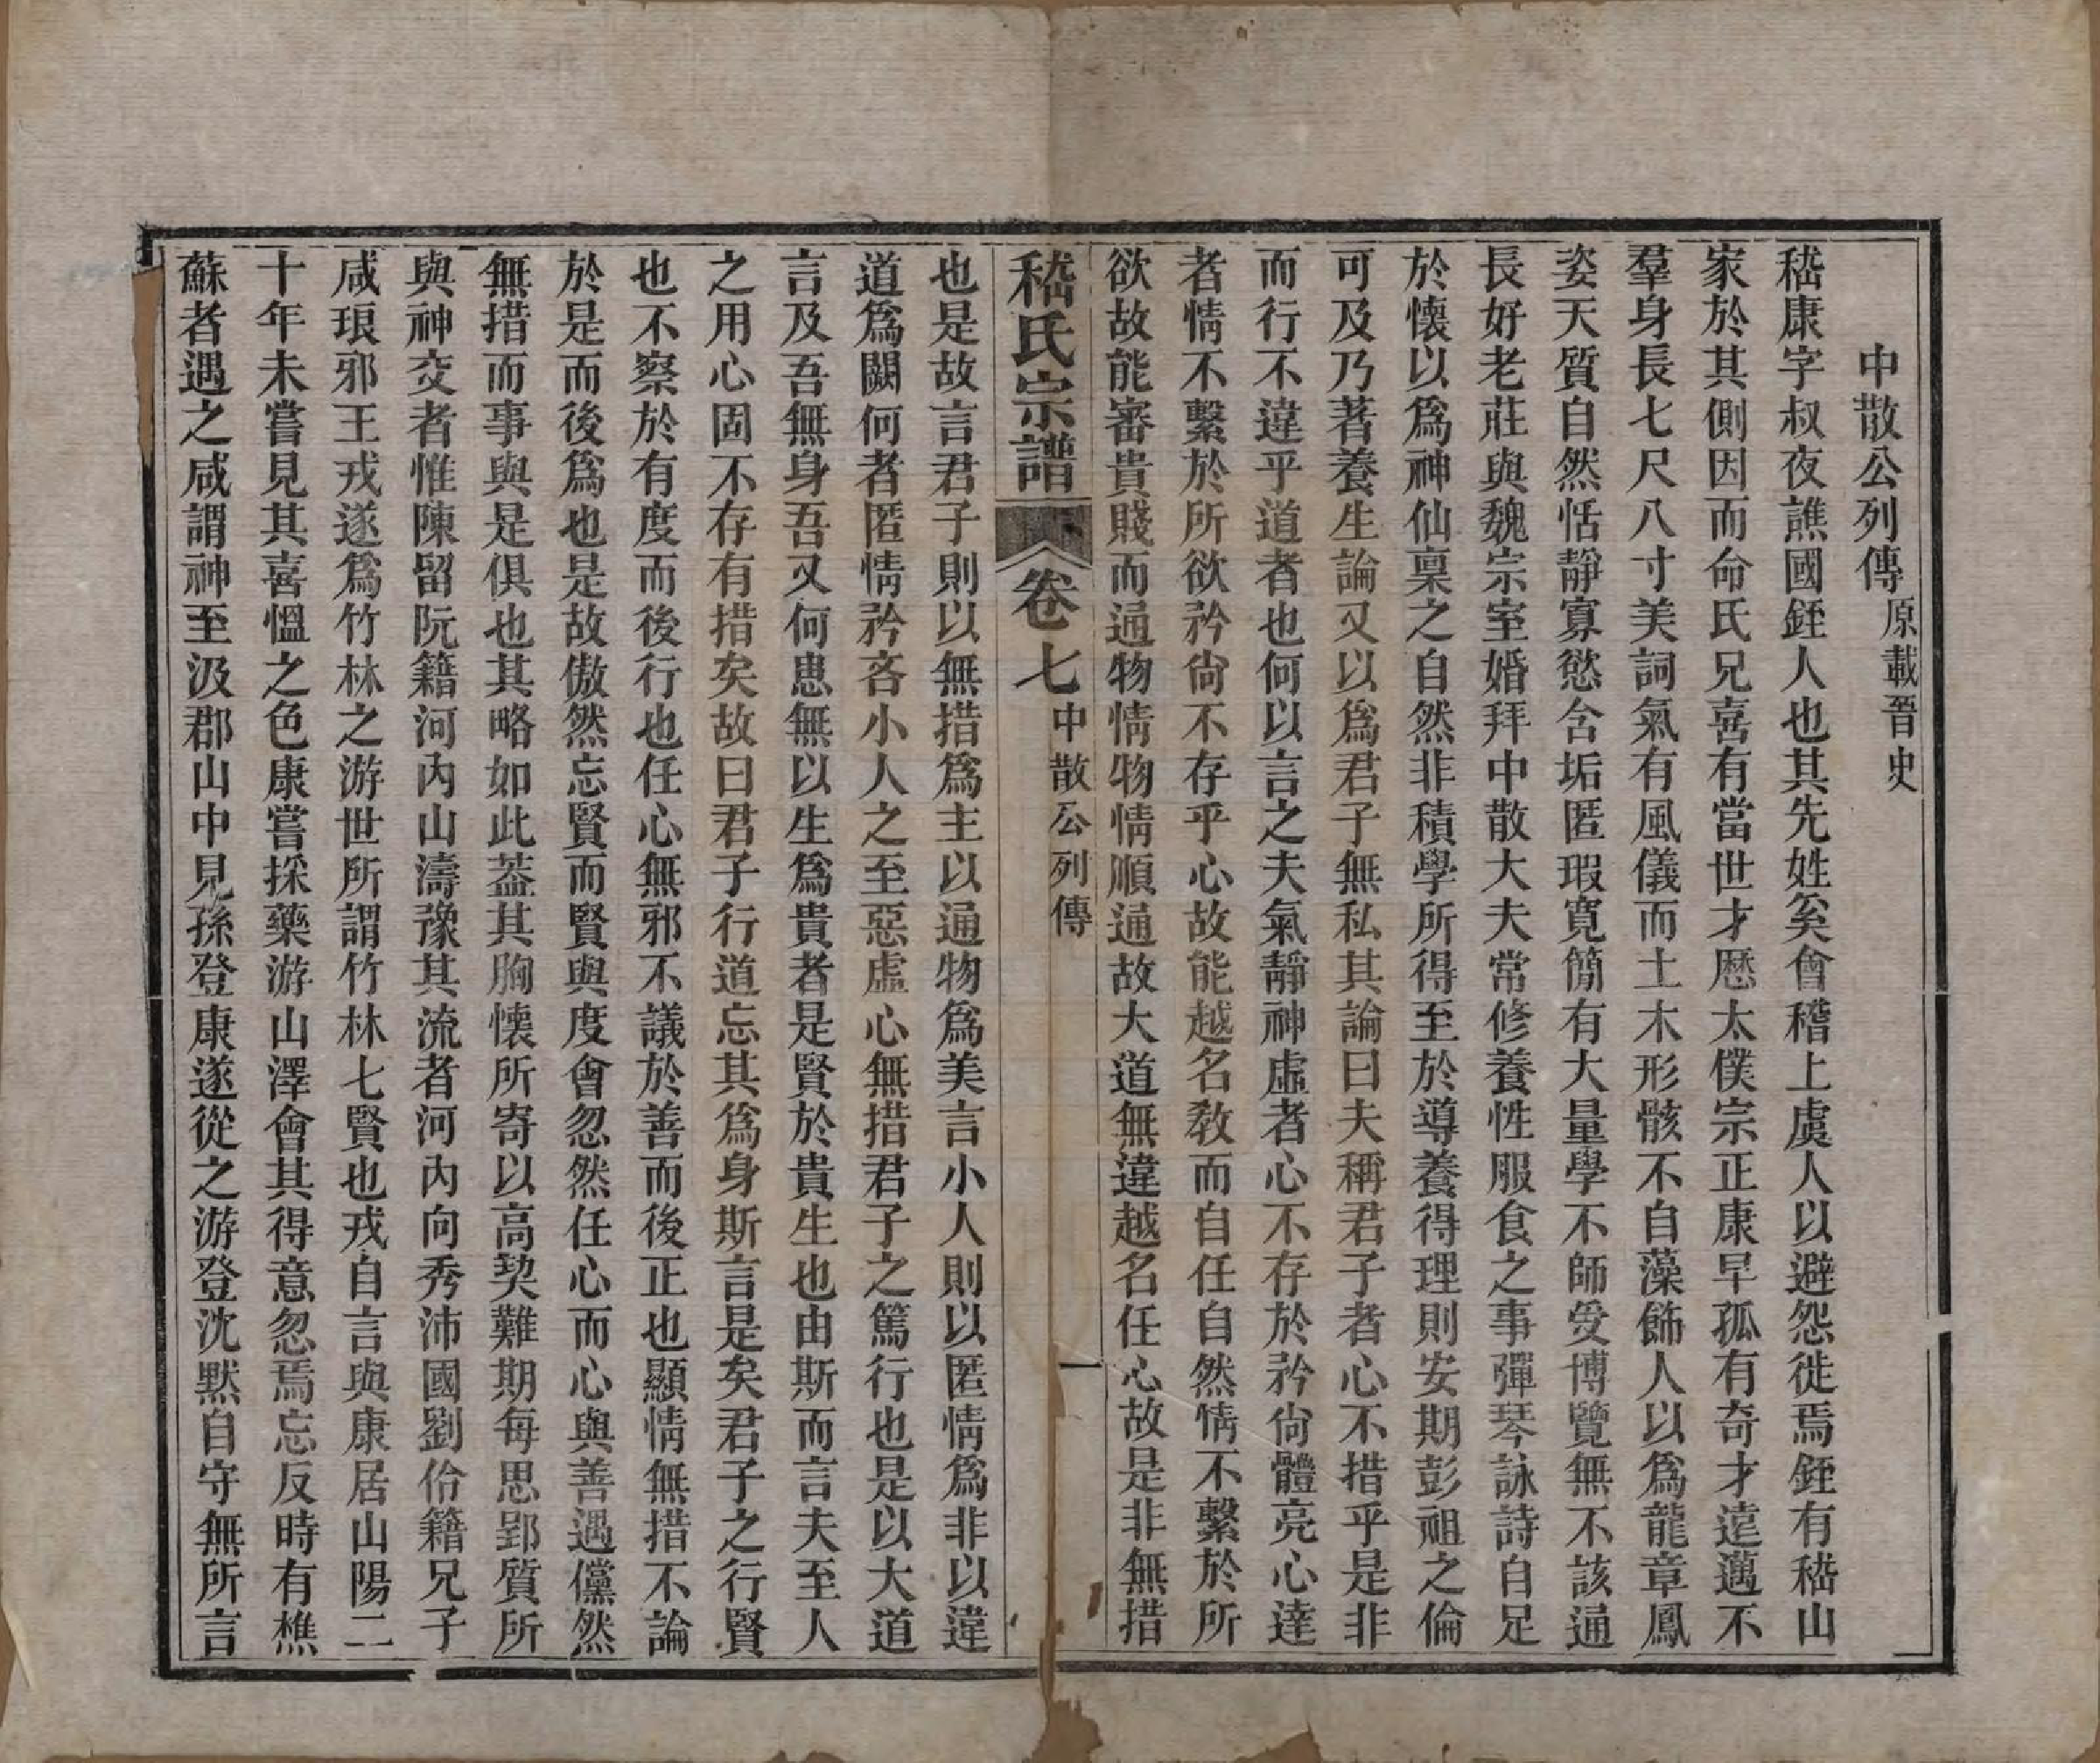 中散公列傳原載晉史
嵇康字叔夜譙國銍人也其先姓奚會稽上虞人以避怨徙焉銍有嵇山
家於其側因而命氏兄喜有當世才歷太僕宗正康早孤有奇才遠邁不
羣身長七尺八寸美詞氣有風儀而土木形骸不自藻飾人以爲龍章鳳
姿天質自然恬靜寡慾含垢匿瑕寬簡有大量學不師受博覽無不該通
長好老莊與魏宗室婚拜中散大夫常修養性服食之事彈琴詠詩自足
於懷以爲神仙稟之自然非積學所得至於導養得理則安期彭祖之倫
可及乃著養生論又以爲君子無私其論曰夫稱君子者心不措乎是非
而行不違乎道者也何以言之夫氣靜神虛者心不存於矜尙體亮心達
者情不繫於所欲矜尙不存乎心故能越名敎而自任自然情不繫於所
欲故能審貴賤而通物情物情順通故大道無違越名任心故是非無措
嵇氏宗譜 卷七 中散公列傳 一
也是故言君子則以無措爲主以通物爲美言小人則以匿情爲非以違
道爲闕何者匿情矜吝小人之至惡虛心無措君子之篤行也是以大道
言及吾無身吾又何患無以生爲貴者是賢於貴生也由斯而言夫至人
之用心固不存有措矣故曰君子行道忘其爲身斯言是矣君子之行賢
也不察於有度而後行也任心無邪不議於善而後正也顯情無措不論
於是而後爲也是故傲然忘賢而賢與度會忽然任心而心與善遇儻然
無措而事與是俱也其略如此蓋其胸懷所寄以高契難期每思郢質所
與神交者惟陳留阮籍河內山濤豫其流者河內向秀沛國劉伶籍兄子
咸琅邪王戎遂爲竹林之游世所謂竹林七賢也戎自言與康居山陽二
十年未嘗見其喜慍之色康嘗採藥游山澤會其得意忽焉忘反時有樵
蘇者遇之咸謂神至汲郡山中見孫登康遂從之游登沈默自守無所言